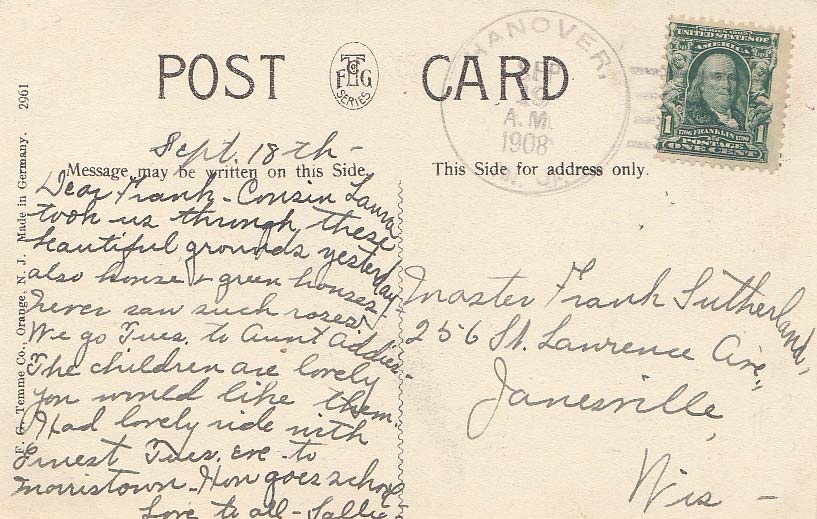 POST CARD
F.G.T. Co
SERIES
HANOVER,
SEP
19
A.M.
1908
N. J.
SERIES 1902
UNITED STATES OF
AMERICA
1706 FRANKLIN 1790
1 POSTAGE 1
ONE CENT
Sept. 18th -
Message may be written on this Side.
This Side for address only.
Dear Frank - Cousin Laura
took us through these
beautiful grounds yesterday
also house & green houses -
Never saw such roses.
We go Tues. to Aunt Addies -
The children are lovely
you would like them.
Had lovely ride with
Ernest Tues. eve to
Morristown - How goes school
Love to all - Sallie
Master Frank Sutherland,
256 St. Lawrence Ave,,
Janesville,
Wis -
F. G. Temme Co., Orange, N. J. Made in Germany. 2961